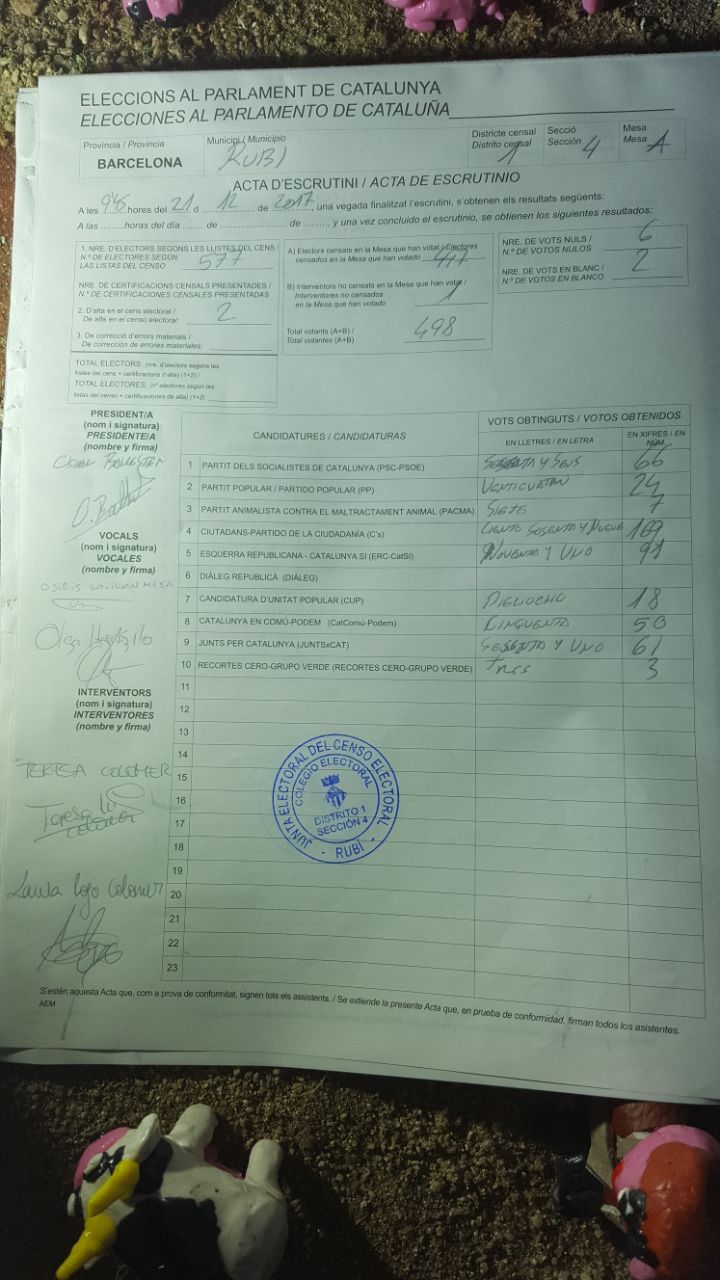 ELECCIONS AL PARLAMENT DE CATALUNYA
ELECCIONES AL PARLAMENTO DE CATALUÑA
Província / Provincia
BARCELONA
Municipi / Municipio
RUBI
Districte censal
Distrito censal 1
Secció
Sección 4
Mesa
Mesa A
ACTA D'ESCRUTINI / ACTA DE ESCRUTINIO
A les 9'45 hores del 21 d 12 de 2017 una vegada finalitzat l'escrutini, s'obtenen els resultats següents:
A las ........hores del día ...... de .................. de .......... y una vez concluido el escrutinio, se obtienen los siguientes resultados:
1. NRE. D'ELECTORS SEGONS LES LLISTES DEL CENS /
N.º DE ELECTORES SEGÚN
LAS LISTAS DEL CENSO 577
NRE. DE CERTIFICACIONS CENSALS PRESENTADES /
N.º DE CERTIFICACIONES CENSALES PRESENTADAS
2. D'alta en el cens electoral /
De alta en el censo electoral: 2
3. De correcció d'errors materials /
De corrección de errores materiales:
TOTAL ELECTORS: (nre. d'electors segons les
llistes del cens + certificacions d'alta) (1+2) /
TOTAL ELECTORES: (nº electores según las
listas del censo + certificaciones de alta) (1+2)
A) Electors censats en la Mesa que han votat / Electores
censados en la Mesa que han votado
B) Interventors no censats en la Mesa que han votat /
Interventores no censados
en la Mesa que han votado 1
Total votants (A+B) /
Total votantes (A+B) 498
NRE. DE VOTS NULS /
N.º DE VOTOS NULOS 6
NRE. DE VOTS EN BLANC /
N.º DE VOTOS EN BLANCO 2
PRESIDENT/A
(nom i signatura)
PRESIDENTE/A
(nombre y firma)
VOCALS
(nom i signatura)
VOCALES
(nombre y firma)
Olga
INTERVENTORS
(nom i signatura)
INTERVENTORES
(nombre y firma)
TERESA COLOMER
Teresa
Colomer
Laura Cojo Colomer
CANDIDATURES / CANDIDATURAS
VOTS OBTINGUTS / VOTOS OBTENIDOS
EN LLETRES / EN LETRA
EN XIFRES / EN NÚM.
1 PARTIT DELS SOCIALISTES DE CATALUNYA (PSC-PSOE) SESENTA Y SEIS 66
2 PARTIT POPULAR / PARTIDO POPULAR (PP) 24
3 PARTIT ANIMALISTA CONTRA EL MALTRACTAMENT ANIMAL (PACMA) SIETE 7
4 CIUTADANS-PARTIDO DE LA CIUDADANÍA (C's) CIENTO SESENTA Y NUEVE 169
5 ESQUERRA REPUBLICANA - CATALUNYA SÍ (ERC-CatSí) NOVENTA Y UNO 91
6 DIÀLEG REPUBLICÀ (DIÀLEG)
7 CANDIDATURA D'UNITAT POPULAR (CUP) DIECIOCHO 18
8 CATALUNYA EN COMÚ-PODEM (CatComú-Podem) CINQUENTA 50
9 JUNTS PER CATALUNYA (JUNTSxCAT) SESENTA Y UNO 61
10 RECORTES CERO-GRUPO VERDE (RECORTES CERO-GRUPO VERDE) Tres 3
11
12
13
14
15
16
17
18
19
20
21
22
23
JUNTA ELECTORAL DEL CENSO ELECTORAL
COLEGIO ELECTORAL
DISTRITO 1
SECCIÓN 4
- RUBÍ -
S'estén aquesta Acta que, com a prova de conformitat, signen tots els assistents. / Se extiende la presente Acta que, en prueba de conformidad, firman todos los asistentes.
AEM